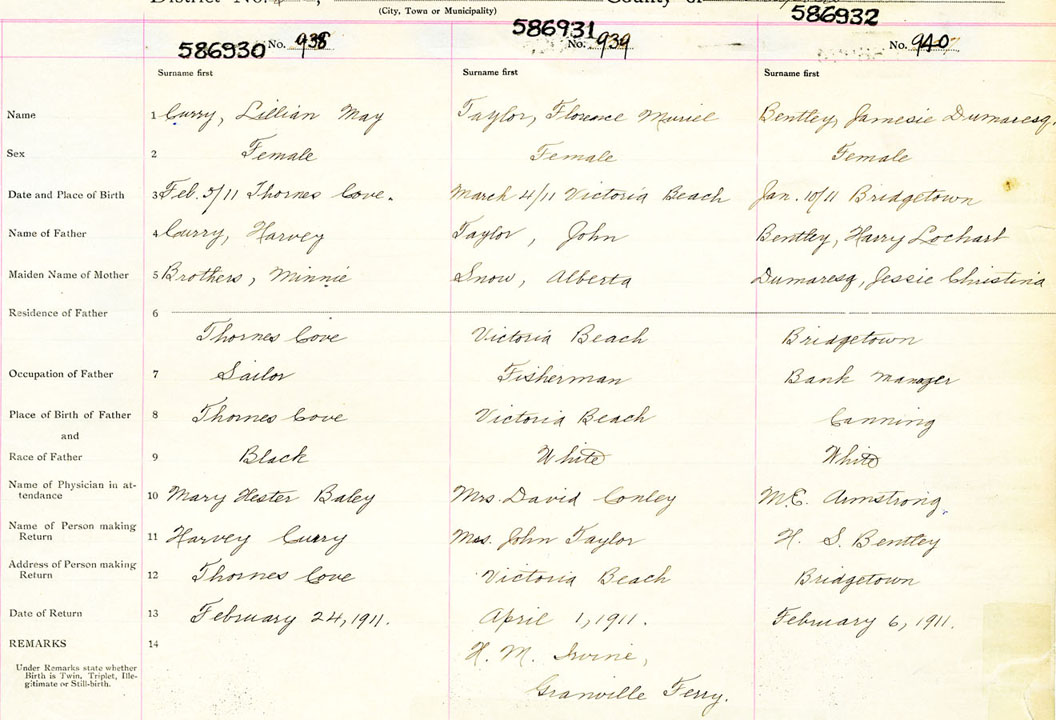 District No. County of
(City, Town or Municipality)
586930 No. 938 586931 No. 939 586932 No. 940
Surname first Surname first Surname first
Name 1 Curry, Lillian May Taylor, Florence Muriel Bentley, Jamesie Dumaresq.
Sex 2 Female Female Female
Date and Place of Birth 3 Feb. 5/11 Thornes Cove. March 4/11 Victoria Beach Jan. 10/11 Bridgetown
Name of Father 4 Curry, Harvey Taylor, John Bentley, Harry Lochart
Maiden Name of Mother 5 Brothers, Minnie Snow, Alberta Dumaresq, Jessie Christina
Residence of Father 6
Thornes Cove Victoria Beach Bridgetown
Occupation of Father 7 Sailor Fisherman Bank Manager
Place of Birth of Father 8 Thornes Cove Victoria Beach Canning
and
Race of Father 9 Black White White
Name of Physician in at-
tendance 10 Mary Hester Baley Mrs. David Conley M.E. Armstrong.
Name of Person making
Return 11 Harvey Curry Mrs. John Taylor H. S. Bentley
Address of Person making
Return 12 Thornes Cove Victoria Beach Bridgetown
Date of Return 13 February 24, 1911. April 1, 1911. February 6, 1911.
REMARKS 14 H. M. Irvine,
Under Remarks state whether
Birth is Twin, Triplet, Ille-
gitimate or Still-birth.
Granville Ferry.